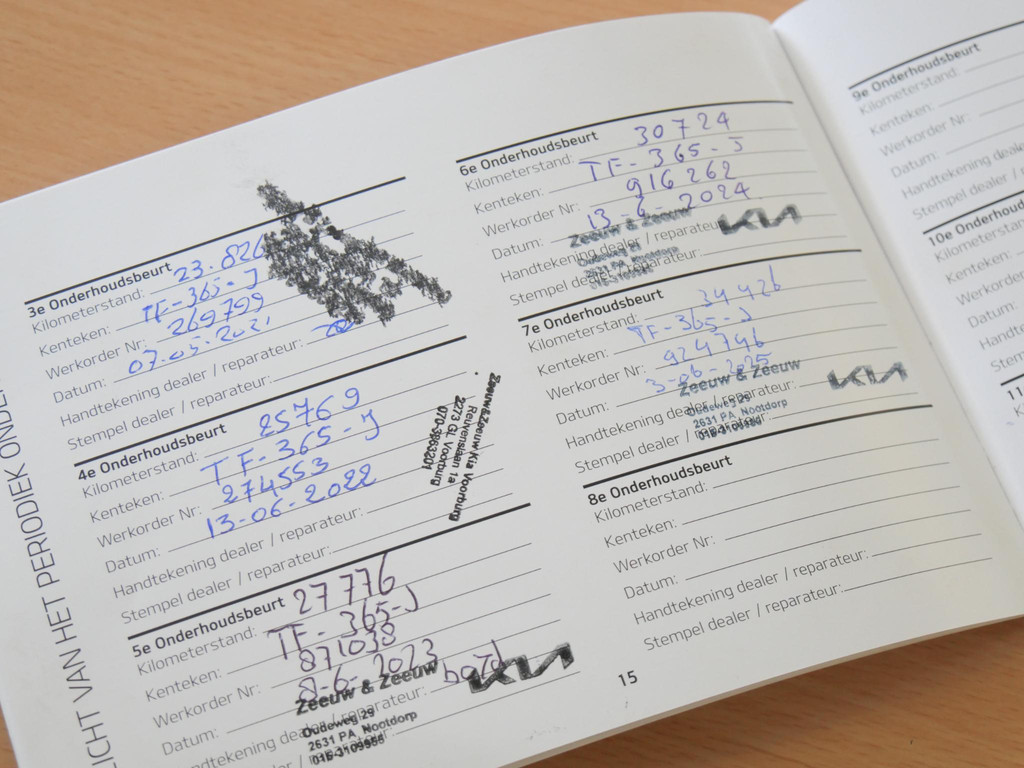 3e Onderhoudsbeurt
Kilometerstand: 23.826
Kenteken: TF-365-J
Werkorder Nr: 269799
Datum: 07.05.2021
Handtekening dealer / reparateur:
Stempel dealer / reparateur:
4e Onderhoudsbeurt
Kilometerstand: 25769
Kenteken: TF-365-J
Werkorder Nr: 274553
Datum: 13-06-2022
Handtekening dealer / reparateur:
Stempel dealer / reparateur:
Zeeuw & Zeeuw Kia Voorburg
Reuvenslaan 1a
2273 GL Voorburg
070-3863201
5e Onderhoudsbeurt
Kilometerstand: 27776
Kenteken: TF-365-J
Werkorder Nr: 871038
Datum: 8-6-2023
Zeeuw & Zeeuw KIA
Oudeweg 29
2631 PA, Nootdorp
015-3109956
6e Onderhoudsbeurt
Kilometerstand: 30724
Kenteken: TF-365-J
Werkorder Nr: 916262
Datum: 13-6-2024
Handtekening dealer / reparateur:
Stempel dealer / reparateur:
Zeeuw & Zeeuw KIA
Oudeweg 29
2631 PA, Nootdorp
7e Onderhoudsbeurt
Kilometerstand: 34426
Kenteken: TF-365-J
Werkorder Nr: 924746
Datum: 3-06-2025
Handtekening dealer / reparateur:
Stempel dealer / reparateur:
Zeeuw & Zeeuw KIA
Oudeweg 29
2631 PA, Nootdorp
8e Onderhoudsbeurt
Kilometerstand:
Kenteken:
Werkorder Nr:
Datum:
Handtekening dealer / reparateur:
Stempel dealer / reparateur:
15
9e Onderhoudsbeurt
Kilometerstand:
Kenteken:
Werkorder Nr:
Datum:
Handtekening
Stempel dealer /
10e
Kilometerstand
Kenteken:
Datum:
11